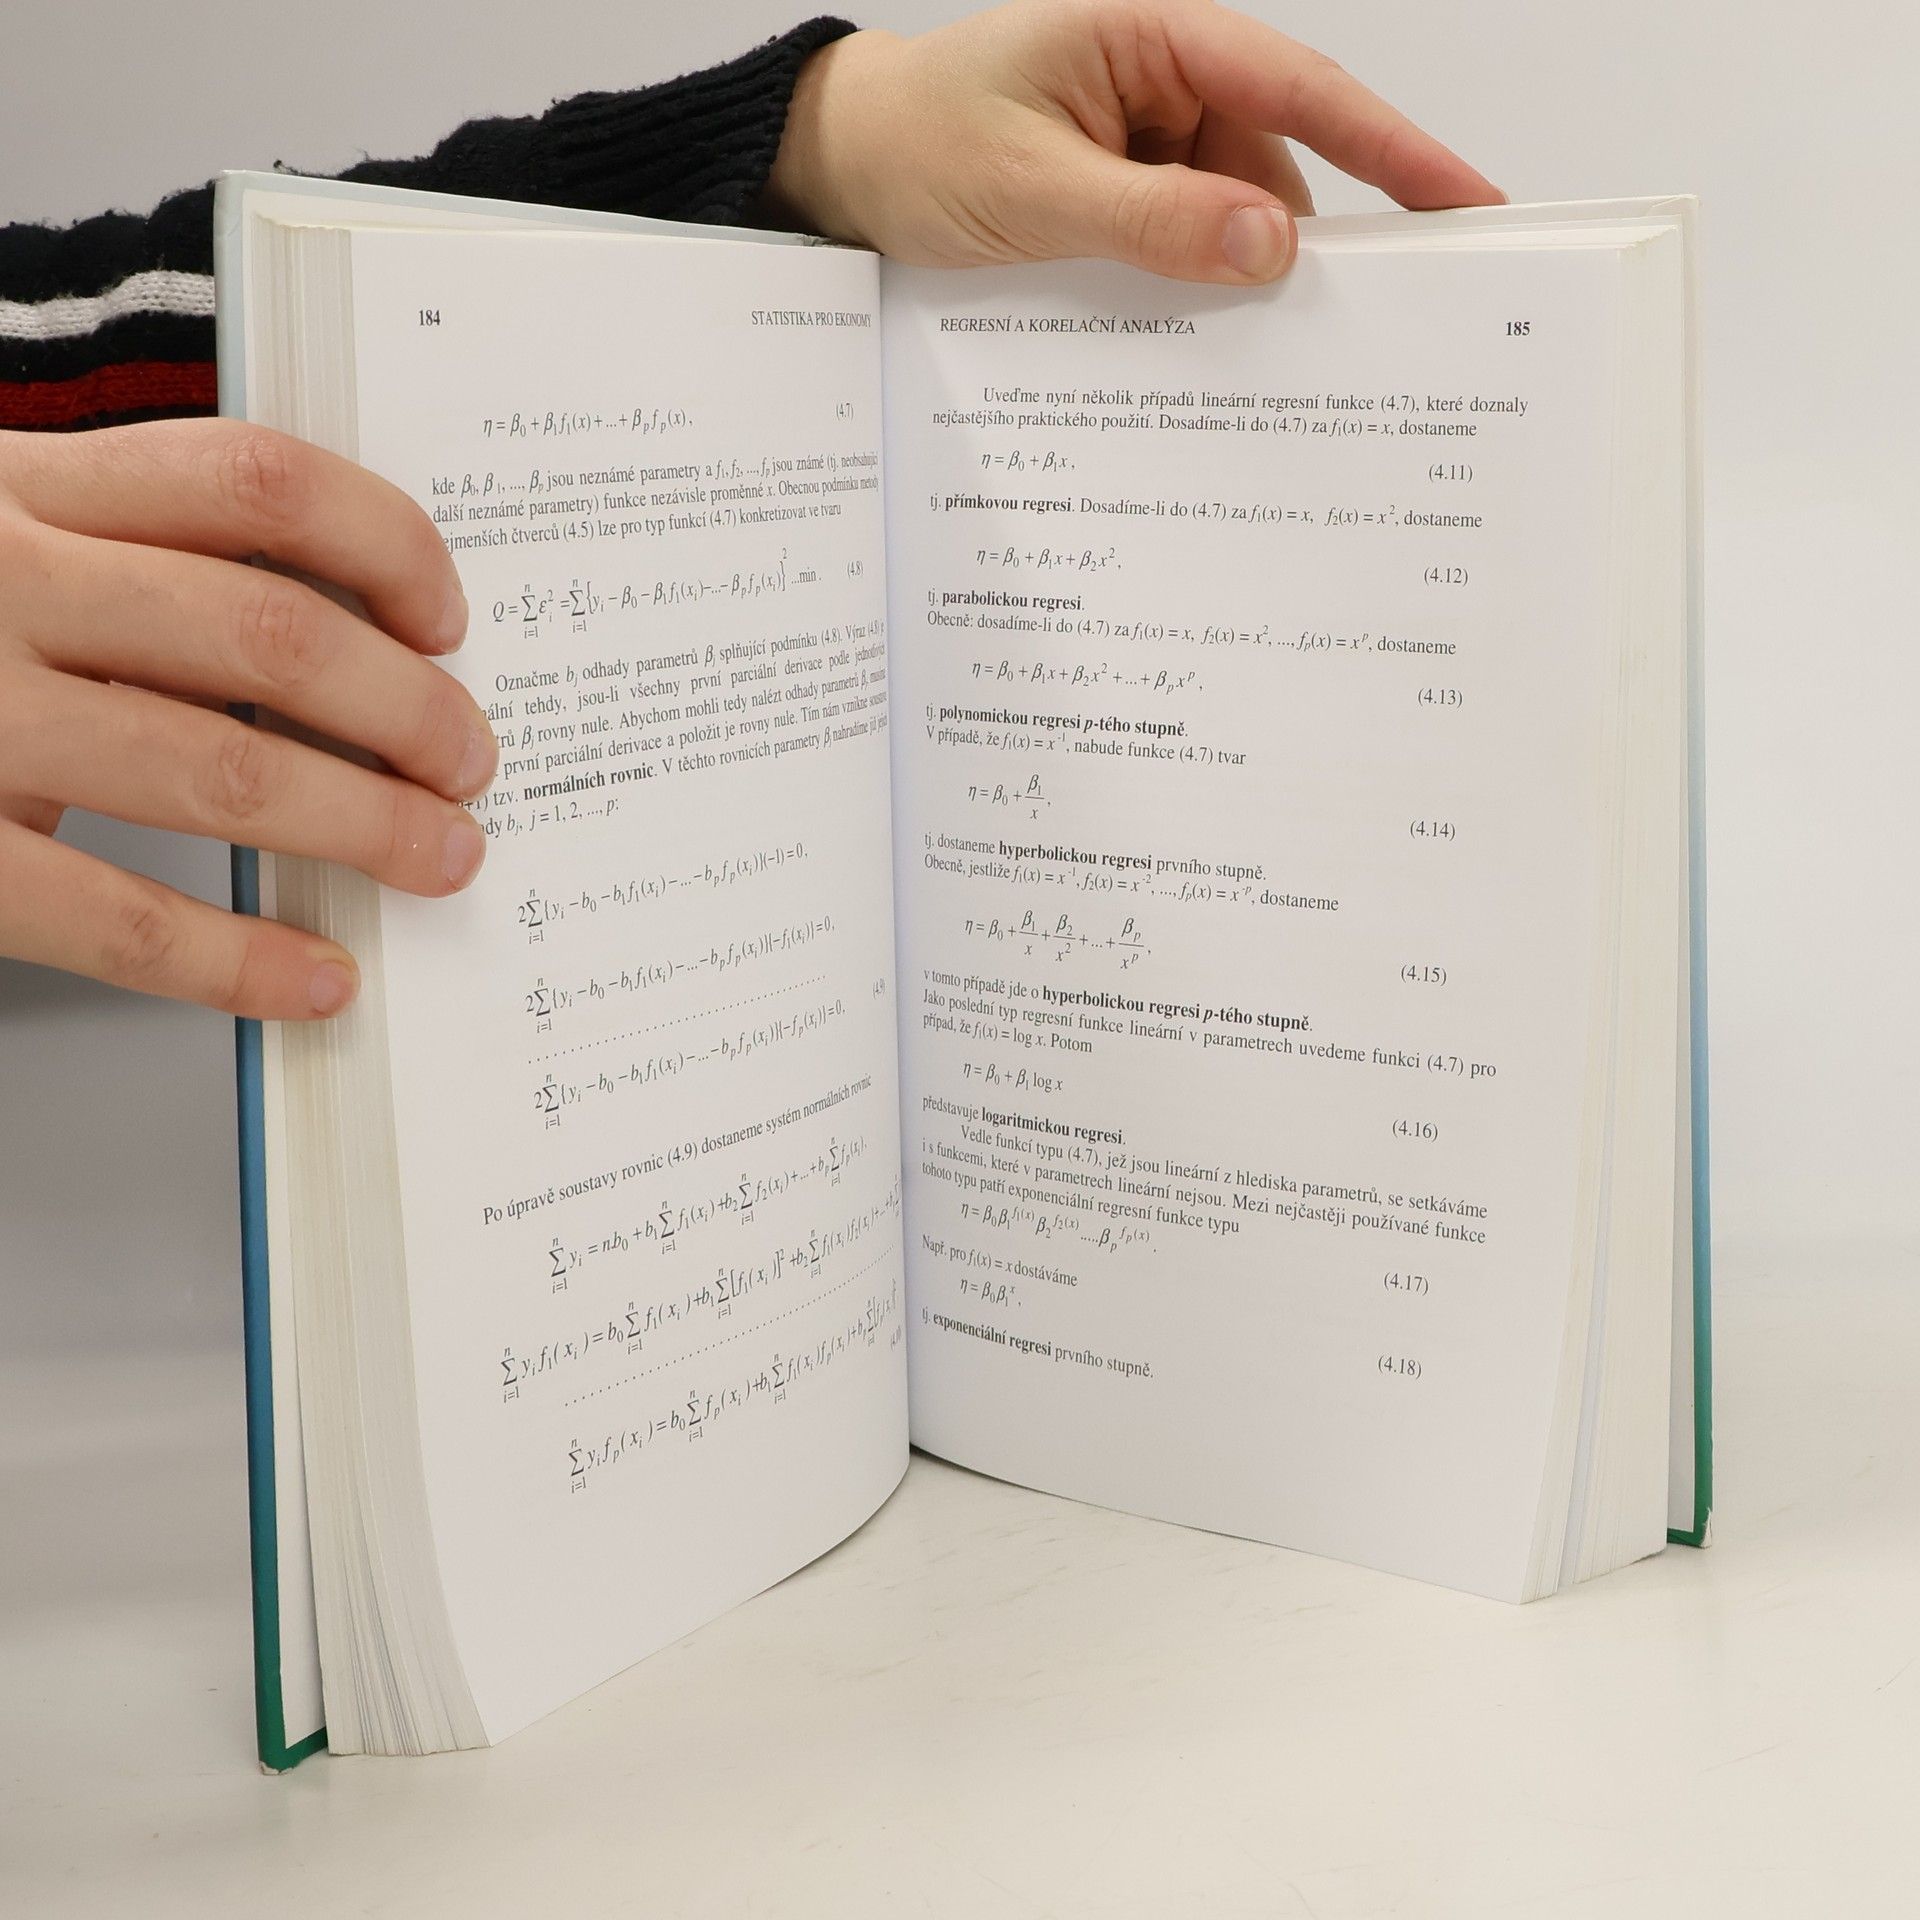 184 STATISTIKA PRO EKONOMY
η = β₀ + β₁f₁(x) + ... + βₚfₚ(x), (4.7)
kde β₀, β₁, ..., βₚ jsou neznámé parametry a f₁, f₂, ..., fₚ jsou známé (tj. neobsahující
další neznámé parametry) funkce nezávisle proměnné x. Obecnou podmínku metody
ejmenších čtverců (4.5) lze pro typ funkcí (4.7) konkretizovat ve tvaru
Q = ∑ᵢ₌₁ⁿ εᵢ² = ∑ᵢ₌₁ⁿ {yᵢ − β₀ − β₁f₁(xᵢ) − ... − βₚfₚ(xᵢ)}² ...min. (4.8)
Označme bⱼ odhady parametrů βⱼ splňující podmínku (4.8). Výraz (4.8)
ální tehdy, jsou-li všechny první parciální derivace podle jednotlivých
trů βⱼ rovny nule. Abychom mohli tedy nalézt odhady parametrů βⱼ, musíme
první parciální derivace a položit je rovny nule. Tím nám vznikne soustava
+1) tzv. normálních rovnic. V těchto rovnicích parametry βⱼ nahradíme již jejich
dy bⱼ, j = 1, 2, ..., p:
2∑ᵢ₌₁ⁿ {yᵢ − b₀ − b₁f₁(xᵢ) − ... − bₚfₚ(xᵢ)}(−1) = 0,
2∑ᵢ₌₁ⁿ {yᵢ − b₀ − b₁f₁(xᵢ) − ... − bₚfₚ(xᵢ)}{−f₁(xᵢ)} = 0,
........................................ (4.9)
2∑ᵢ₌₁ⁿ {yᵢ − b₀ − b₁f₁(xᵢ) − ... − bₚfₚ(xᵢ)}{−fₚ(xᵢ)} = 0,
Po úpravě soustavy rovnic (4.9) dostaneme systém normálních rovnic
∑ᵢ₌₁ⁿ yᵢ = nb₀ + b₁∑ᵢ₌₁ⁿ f₁(xᵢ) + b₂∑ᵢ₌₁ⁿ f₂(xᵢ) + ... + bₚ∑ᵢ₌₁ⁿ fₚ(xᵢ),
∑ᵢ₌₁ⁿ yᵢf₁(xᵢ) = b₀∑ᵢ₌₁ⁿ f₁(xᵢ) + b₁∑ᵢ₌₁ⁿ [f₁(xᵢ)]² + b₂∑ᵢ₌₁ⁿ f₁(xᵢ)f₂(xᵢ) + ... +
........................................
∑ᵢ₌₁ⁿ yᵢfₚ(xᵢ) = b₀∑ᵢ₌₁ⁿ fₚ(xᵢ) + b₁∑ᵢ₌₁ⁿ f₁(xᵢ)fₚ(xᵢ) + bₚ∑ᵢ₌₁ⁿ [fₚ(xᵢ)]² (4.10)
REGRESNÍ A KORELAČNÍ ANALÝZA 185
Uveďme nyní několik případů lineární regresní funkce (4.7), které doznaly
nejčastějšího praktického použití. Dosadíme-li do (4.7) za f₁(x) = x, dostaneme
η = β₀ + β₁x, (4.11)
tj. přímkovou regresi. Dosadíme-li do (4.7) za f₁(x) = x, f₂(x) = x², dostaneme
η = β₀ + β₁x + β₂x², (4.12)
tj. parabolickou regresi.
Obecně: dosadíme-li do (4.7) za f₁(x) = x, f₂(x) = x², ..., fₚ(x) = xᵖ, dostaneme
η = β₀ + β₁x + β₂x² + ... + βₚxᵖ, (4.13)
tj. polynomickou regresi p-tého stupně.
V případě, že f₁(x) = x⁻¹, nabude funkce (4.7) tvar
η = β₀ + β₁/x, (4.14)
tj. dostaneme hyperbolickou regresi prvního stupně.
Obecně, jestliže f₁(x) = x⁻¹, f₂(x) = x⁻², ..., fₚ(x) = x⁻ᵖ, dostaneme
η = β₀ + β₁/x + β₂/x² + ... + βₚ/xᵖ, (4.15)
v tomto případě jde o hyperbolickou regresi p-tého stupně.
Jako poslední typ regresní funkce lineární v parametrech uvedeme funkci (4.7) pro
případ, že f₁(x) = log x. Potom
η = β₀ + β₁ log x (4.16)
představuje logaritmickou regresi.
Vedle funkcí typu (4.7), jež jsou lineární z hlediska parametrů, se setkáváme
i s funkcemi, které v parametrech lineární nejsou. Mezi nejčastěji používané funkce
tohoto typu patří exponenciální regresní funkce typu
η = β₀β₁^f₁(x) β₂^f₂(x) ..... βₚ^fₚ(x). (4.17)
Např. pro f₁(x) = x dostáváme
η = β₀β₁ˣ, (4.18)
tj. exponenciální regresi prvního stupně.